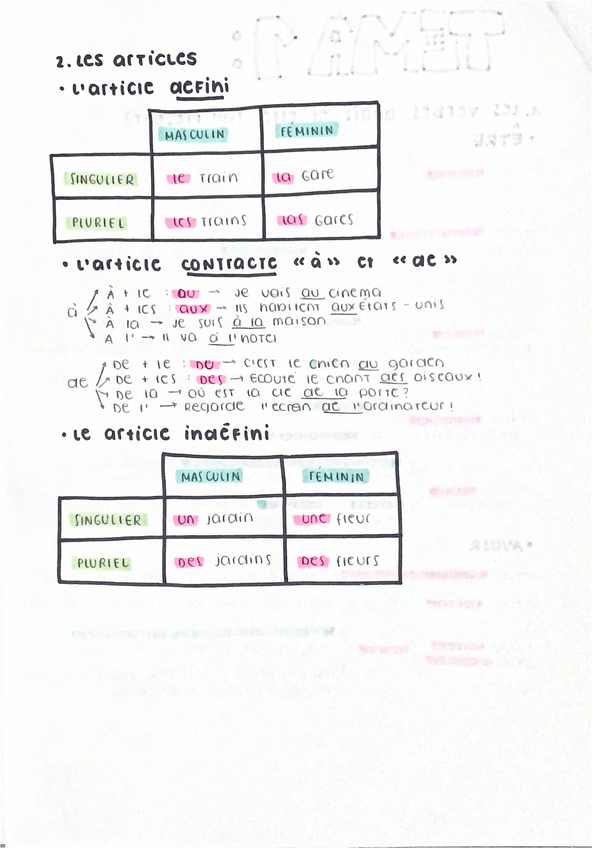 2. Les articles
• L'article défini
MASCULIN FÉMININ
SINGULIER le train la gare
PLURIEL les trains las gares
• L'article CONTRACTE «à» et «de»
À + le : DU → je vais au cinema
à À + les : aux → Ils habitent aux États-unis
À la → je suis à la maison
À l' → Il va à l'hotel
De + le : DU → C'est le chien du garden
de De + les : Des → Ecoute le chant des oiseaux!
De la → où est la clé de la porte?
De l' → Regarde l'ecran de l'ordinateur!
• Le article indéfini
MASCULIN FÉMININ
SINGULIER un jardin une fleur
PLURIEL Des jardins Des fleurs